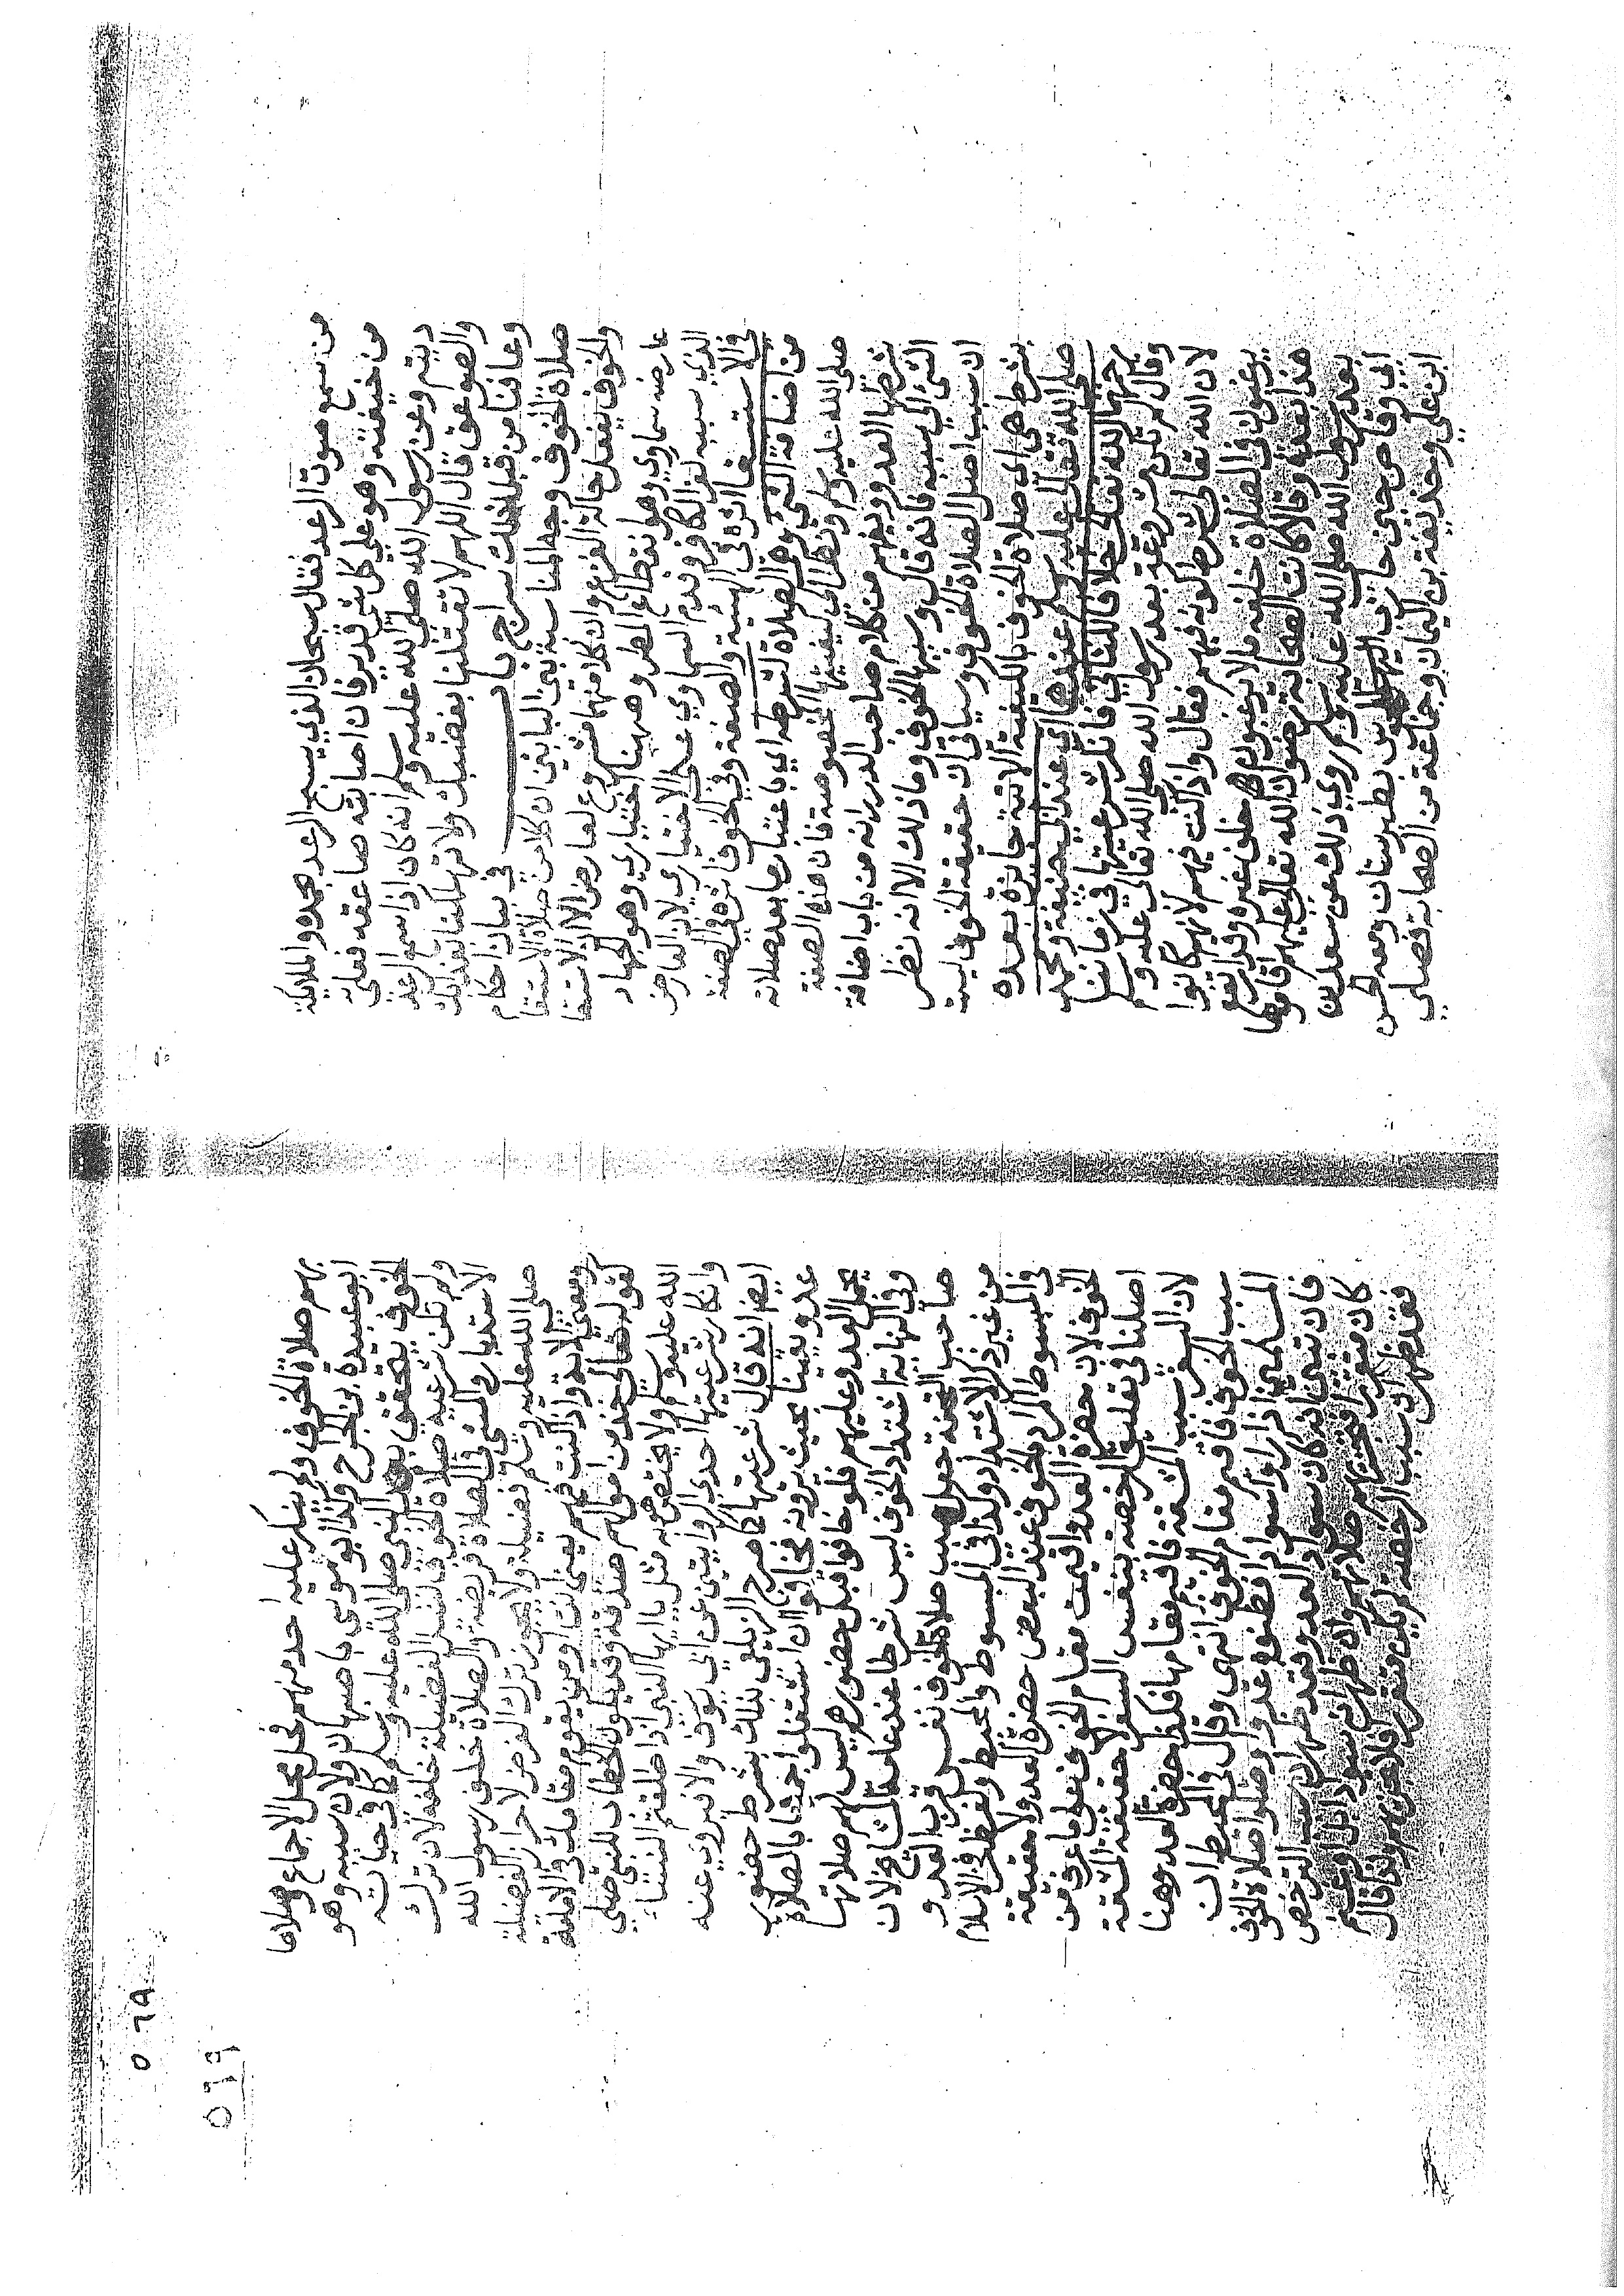 من سمع صوت الرعد فقال سبحان الذي يسبح الرعد بحمده والملائكة
من خيفته وهو على كل شئ قدير فان اصابته صاعقة فعلى
ديته وعن رسول الله صلى الله عليه وسلم انه كان اذا سمع الرعد
والصوعق قال اللهم لا تقتلنا بغضبك ولا تهلكنا بعذابك
وعافنا من قبل ذلك سراج باب في بيان احكام
صلاة الخوف وجه المناسبة بين البابين ان كلا من صلاة الاستسقا
والخوف يفعل حالة الفزع وان كلا منهما مشروع لعارض الا ان الاستسقا
عارضه سماوي وهو انقطاع المطر وههنا اختياري وهو الجهاد
الذي سببه كفر الكافر وقدم السماوي على الاختياري لان العارض
في الاستسقا اثره في الهيئة والصفة وفي الخوف اثره في الصفة
من اضافة الشئ وهو الصلاة لشرطه اي باعتبار ما بعد صلاته
صلى الله عليه وسلم ونظرا الى كيفيتها المخصوصة فان هذه الصفة
شرطها العدو ويفهم من كلام صاحب الدرر انه من باب اضافة
الشئ الى سببه فانه قال وسببها الخوف وما ذلك الا انه نظر
ان سبب اصل الصلاة الخوف وسياتي ان حقيقة الخوف ليست
بشرط هي اي صلاة الخوف بالكيفية الاتية جائزة بعده
صلى الله تعالى عليه وسلم عندهما اي عند ابي حنيفة ومحمد
رحمهما الله تعالى خلافا للثاني فانكر شرعيتها في زماننا
وقال لم تكن مشروعة بعد رسول الله صلى الله تعالى عليه وسلم
لان الله تعالى شرط كونه فيهم فقال واذا كنت فيهم لانهم كانوا
يرغبون في الصلاة خلفه ما لا يرغبون خلف غيره وقد ارتفع
هذا بعده وقالا كانت الصحابة رضوان الله تعالى عليهم اقاموها
بعد رسول الله صلى الله عليه وسلم روي ذلك عن سعد بن
ابي وقاص حين حارب بطبرستان ومعه الحسن
ابن علي وحذيفة بن اليمان وجماعة من الصحابة فصلى
بهم صلاة الخوف ولم ينكر عليه احد منهم فحل محل الاجماع وصلاها
ابو عبيدة بن الجراح وكذا ابو موسى باصبهان ولان سببه وهو
الخوف يتحقق بعد النبي صلى الله عليه وسلم كما في حياته
ولم تكن شرعية صلاة الخوف لنيل الفضيلة خلفه لان ترك
الاستدبار والمشي في الصلاة فريضة والصلاة خلف رسول الله
صلى الله عليه وسلم فضيلة ولا يجوز ترك الفرض لاحراز الفضيلة
ومعنى الاية واذا كنت فيهم يعني انت او من يقوم مقامك في الامامة
لقوله تعالى خذ من اموالهم صدقة وقد يكون الخطاب للنبي صلى
الله عليه وسلم ولا يختص هو به مثل يا ايها النبي اذا طلقتم النساء
وانكار شرعيتها احدى الروايتين عن ابي يوسف والاخرى روي عنه
ايضا انه قال شرعيتها كما صرح الزيلعي بذلك بشرط حضور
عدو يقينا بحيث يرونه فخافوا ان اشتغلوا جميعا بالصلاة
يحمل العدو عليهم فلو خافوا قبل حضوره ليس لهم صلاتها
وفي النهاية اشتداد الخوف ليس شرطا عند عامة المشايخ لان
صاحب التحفة جعل سبب صلاة الخوف نفس قرب العدو
من غير ذكر الاشتداد وكذا في المبسوط والمحيط ولفظ فخر الاسلام
في المبسوط المراد بالخوف عند البعض حضرة العدو لا حقيقة
الخوف لان حضرة العدو اقيمت مقام الخوف على ما عرف من
اصلنا في تعليق الرخصة بنفس السفر لا حقيقة المشقة
لان السفر سبب المشقة فاقيم مقامها فكذا حضرة العدو هنا
سبب الخوف فاقيم مقام الخوف انتهى وقال في المحيط ان
المسلمين اذا راوا سوادا فظنوه عدوا وصلوا صلاة الخوف
فان تبين انه كان سواد العدو فقد ظهر ان سبب الترخص
كان متقررا فتجزئهم صلاتهم وان ظهر ان السواد ابل او غنم
فقد ظهر ان سبب الرخصة لم يكن متقررا فلا تجزئهم
٥٦٩
٥٦٩